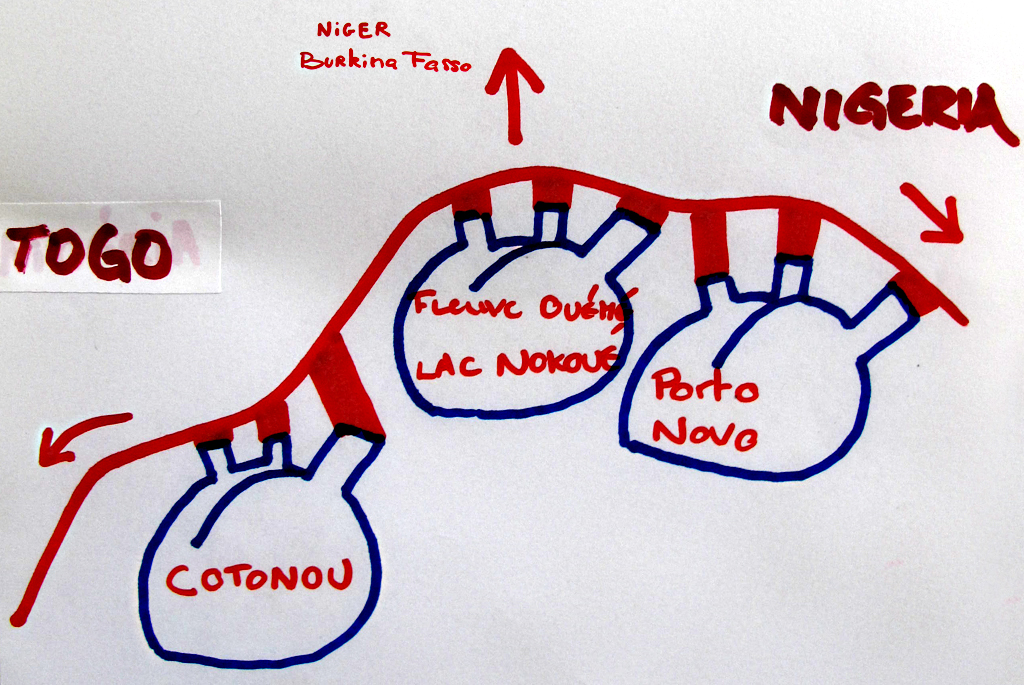 NIGER
Burkina Fasso
NIGERIA
TOGO
Fleuve Ouémé
LAC NOKOUE
Porto
Novo
COTONOU